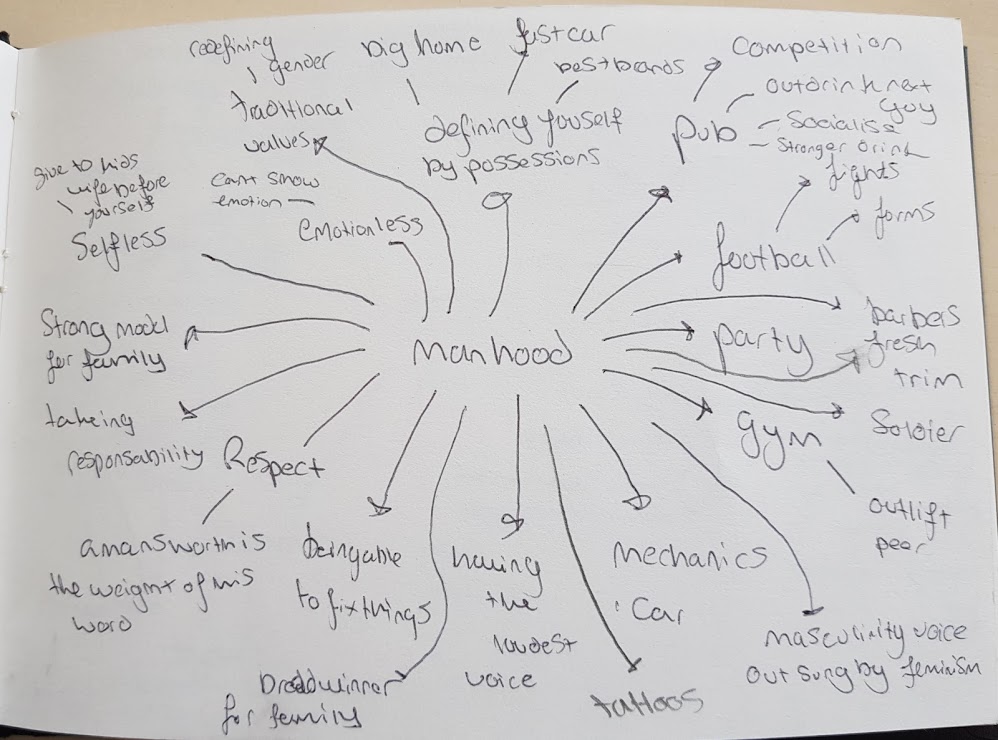 redefining
gender
traditional
values
big home
fast car
best brands
defining youself
by possessions
Competition
pub
outdrink next
guy
Socialise
Stronger drink
fights
forms
football
give to kids
wife before
yourself
Selfless
cant show
emotion
emotionless
Strong model
for family
manhood
party
barbers
fresh
trim
takeing
responsability
Respect
gym
Soldier
outlift
peer
a mans worth is
the weight of his
word
being able
to fix things
having
the
loudest
voice
mechanics
Car
masculinity voice
out sung by feminism
Breadwinner
for family
tattoos